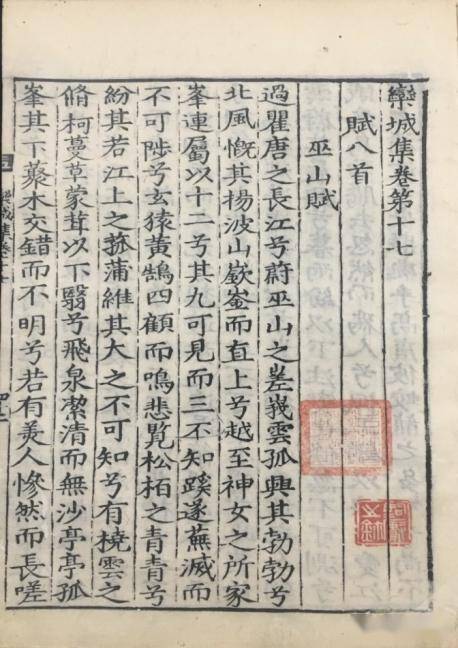 欒城集卷第十七
賦八首
巫山賦
過瞿唐之長江兮蔚巫山之嵳峩雲孤興其勃勃兮
北風慨其楊波山嶔崟而直上兮越至神女之所家
峯連屬以十二兮其九可見而三不知蹊遂蕪滅而
不可陟兮玄猿黃鵠四顧而鳴悲覽松柏之青青兮
紛其若江上之菰蒲維其大之不可知兮有橈雲之
脩柯蔓草蒙茸以下翳兮飛泉潔清而無沙亭亭孤
峯其下藂木交錯而不明兮若有美人慘然而長嗟